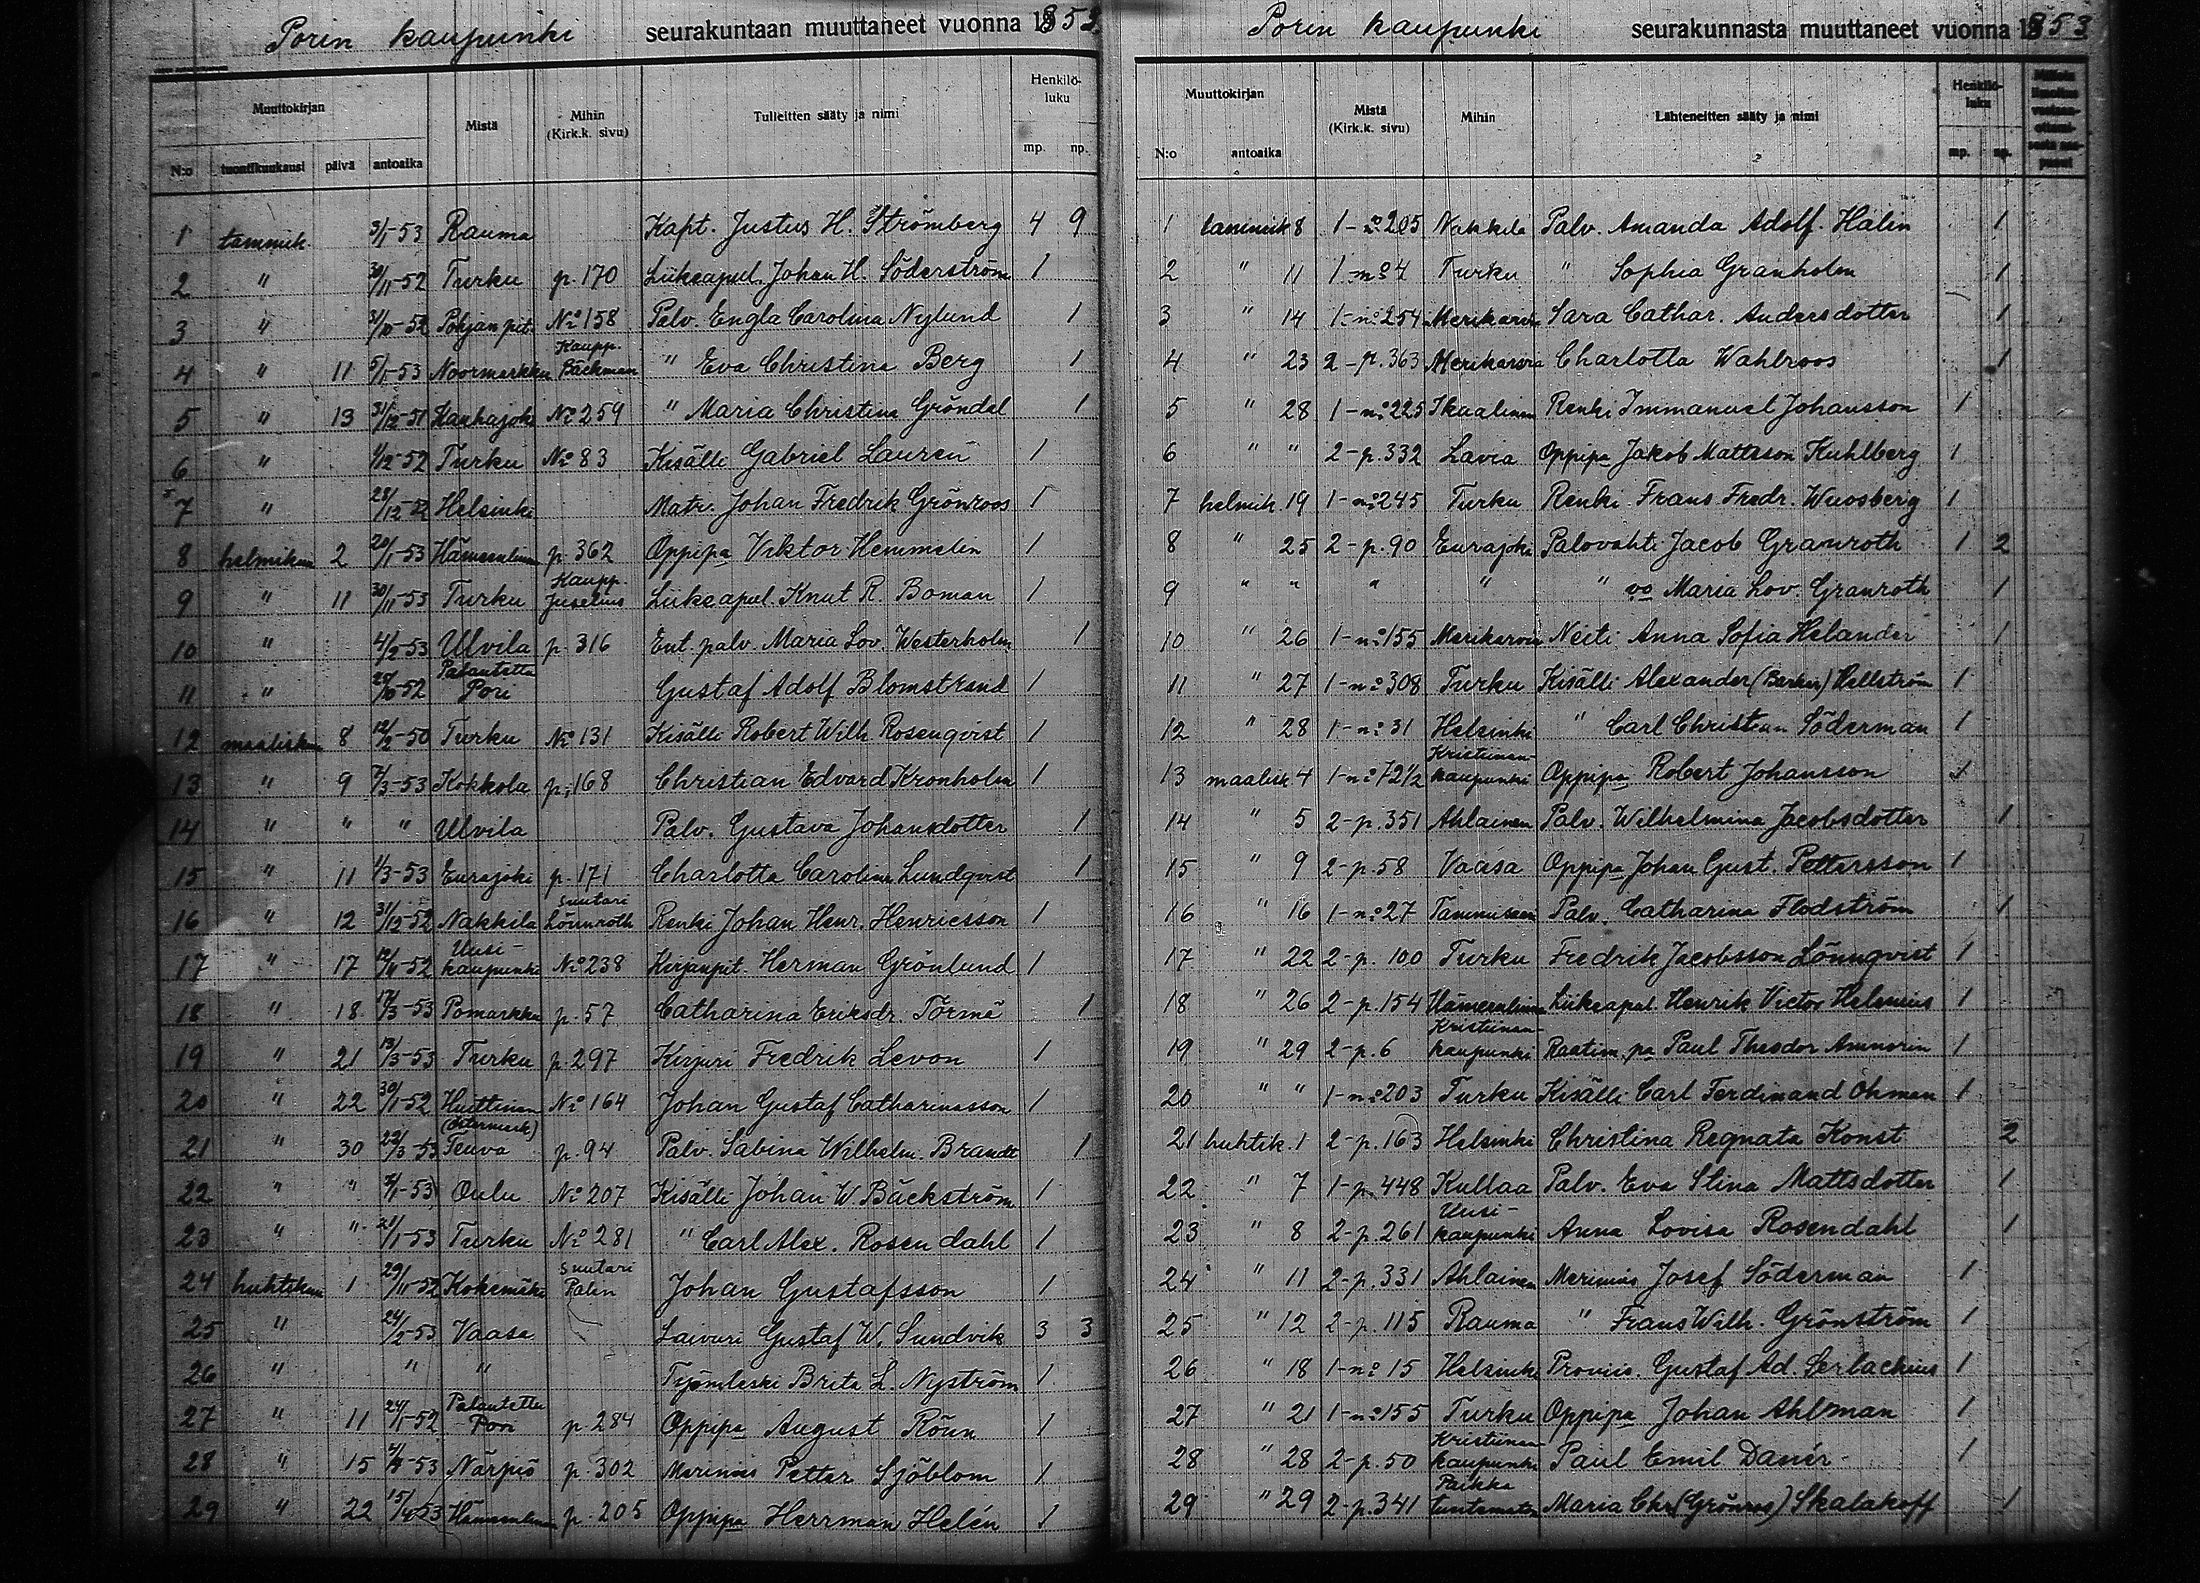 Porin kaupunki seurakuntaan muuttaneet vuonna 1853
Muuttokirjan Mistä Mihin (Kirk.k. sivu) Tulleitten sääty ja nimi Henkilö-luku
N:o tuontikuukausi päivä antoaika mp. np.
1 tammik. 3/1-53 Rauma Kapt. Justus H. Strömberg 4 9
2 " 30/11-52 Turku p. 170 Liikeapul. Johan H. Söderström 1
3 " 31/10-52 Pohjan pit. No 158 Palv. Engla Carolina Nylund 1
4 " 11 5/1-53 Noormarkku Kaupp. Bäckman " Eva Christina Berg 1
5 " 13 31/12-51 Kauhajoki No 259 " Maria Christina Gröndal 1
6 " 1/12-52 Turku No 83 Kisälli Gabriel Laurén 1
7 " 28/12-52 Helsinki Matr. Johan Fredrik Grönroos 1
8 helmikuu 2 20/1-53 Hämeenlinna p. 362 Oppipa Viktor Hemmelin 1
9 " 11 30/11-53 Turku Kaupp. Juselius Liikeapul. Knut R. Boman 1
10 " 4/2-53 Ulvila p. 316 Ent. palv. Maria Lov. Westerholm 1
11 " 25/10-52 Palautettu Pori Gustaf Adolf Blomstrand 1
12 maalisk. 8 12/2-50 Turku No 131 Kisälli Robert Wilh. Rosenqvist 1
13 " 9 7/3-53 Kokkola p. 168 Christian Edvard Kronholm 1
14 " " " Ulvila Palv. Gustava Johansdotter 1
15 " 11 1/3-53 Eurajoki p. 171 Charlotta Carolina Lundqvist 1
16 " 12 31/12-52 Nakkila suutari Lönnroth Renki Johan Henr. Henricsson 1
17 " 17 12/11-52 Uusi-kaupunki No 238 Kirjanpit. Herman Grönlund 1
18 " 18 17/3-53 Pomarkku p. 57 Catharina Eriksdr. Törmä 1
19 " 21 13/3-53 Turku p. 297 Kirjuri Fredrik Levon 1
20 " 22 30/1-52 Huittinen No 164 Johan Gustaf Catharinasson 1
21 " 30 22/3-53 (Östermark) Teuva p. 94 Palv. Sabina Wilhelm. Brandt 1
22 " " 7/1-53 Oulu No 207 Kisälli Johan W. Bäckström 1
23 " " 21/1-53 Turku No 281 " Carl Alex. Rosendahl 1
24 huhtikuu 1 29/11-52 Kokemäki suutari Palin Johan Gustafsson 1
25 " 24/2-53 Vaasa Laivuri Gustaf W. Sundvik 3 3
26 " " " Brita L. Nyström 1
27 " 11 24/1-52 Palautettu Pori p. 284 Oppipa August Rönn 1
28 " 15 -53 Närpiö p. 302 Merimies Petter Sjöblom 1
29 " 22 15/4-53 Hämeenlinna p. 205 Oppipa Herrman Helén 1
Porin kaupunki seurakunnasta muuttaneet vuonna 1853
Muuttokirjan Mistä (Kirk.k. sivu) Mihin Lähteneitten sääty ja nimi Henkilö-luku
N:o antoaika mp. np.
1 tammik 8 1-no 205 Nakkila Palv. Amanda Adolf. Halin 1
2 " 11 1-no 4 Turku " Sophia Granholm 1
3 " 14 1-no 254 Merikarvia Sara Cathar. Andersdotter 1
4 " 23 2-p. 363 Merikarvia Charlotta Wahlroos 1
5 " 28 1-no 225 Ikaalinen Renki Immanuel Johansson 1
6 " " 2-p. 332 Lavia Oppipa Jakob Mattsson Kuhlberg 1
7 helmik. 19 1-no 245 Turku Renki Frans Fredr. Wuosberg 1
8 " 25 2-p. 90 Eurajoki Palovahti Jacob Granroth 1 2
9 " " " " " vo Maria Lov. Granroth 1
10 " 26 1-no 155 Merikarvia Neiti Anna Sofia Helander 1
11 " 27 1-no 308 Turku Kisälli Alexander (Barker) Hellström 1
12 " 28 1-no 31 Helsinki " Carl Christian Söderman 1
13 maalisk 4 1-no 72 1/2 Kristiinan-kaupunki Oppipa Robert Johansson 1
14 " 5 2-p. 351 Ahlainen Palv. Wilhelmina Jacobsdotter 1
15 " 9 2-p. 58 Vaasa Oppipa Johan Gust. Pettersson 1
16 " 16 1-no 27 Tammisaari Palv. Catharina Flodström 1
17 " 22 2-p. 100 Turku Fredrik Jacobsson Lönnqvist 1
18 " 26 2-p. 154 Hämeenlinna Liikeapul. Henrik Victor Helenius 1
19 " 29 2-p. 6 Kristiinan-kaupunki Raatim. pa Paul Theodor Ammorin 1
20 " " 1-no 203 Turku Kisälli Carl Ferdinand Öhman 1
21 huhtik. 1 2-p. 163 Helsinki Christina Regnata Konst 2
22 " 7 1-p. 448 Kullaa Palv. Eva Stina Mattsdotter 1
23 " 8 2-p. 261 Uusi-kaupunki Anna Lovisa Rosendahl 1
24 " 11 2-p. 331 Ahlainen Merimies Josef Söderman 1
25 " 12 2-p. 115 Rauma " Frans Wilh. Grönström 1
26 " 18 1-no 15 Helsinki Proviis. Gustaf Ad. Serlachius 1
27 " 21 1-no 155 Turku Oppipa Johan Ahlman 1
28 " 28 2-p. 50 Kristiinan kaupunki Paul Emil Danér 1
29 " 29 2-p. 341 Paikka tuntematon Maria Chr. (Grönroos) Skalakoff 1